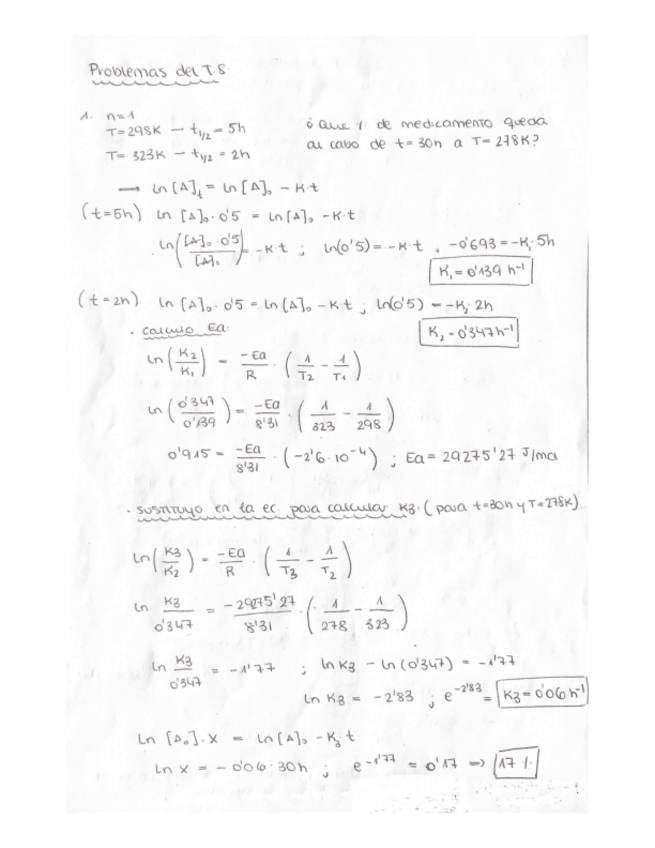 Problemas del T.S.
1. n=1
T=298K — t1/2 = 5h
T= 323K — t1/2 = 2h
¿Que % de medicamento queda
al cabo de t=30h a T=278K?
→ ln [A]t = ln [A]₀ - K·t
(t=5h) ln [A]₀·0'5 = ln[A]₀ - K·t
ln([A]₀·0'5/[A]₀) = -K·t ; ln(0'5) = -K·t , -0'693 = -K₁·5h
K₁=0'139 h⁻¹
(t=2h) ln [A]₀·0'5 = ln[A]₀ - K·t ; ln(0'5) = -K₂·2h
K₂=0'347h⁻¹
· calculo Ea:
ln(K₂/K₁) = -Ea/R · (1/T₂ - 1/T₁)
ln(0'347/0'139) = -Ea/8'31 · (1/323 - 1/298)
0'915 = -Ea/8'31 · (-2'6·10⁻⁴) ; Ea = 29275'27 J/mol
· sustituyo en la ec. para calcular K₃. (para t=30h y T=278K)
ln(K₃/K₂) = -Ea/R · (1/T₃ - 1/T₂)
ln K₃/0'347 = -29275'27/8'31 · (1/278 - 1/323)
ln K₃/0'347 = -1'77 ; ln K₃ - ln(0'347) = -1'77
ln K₃ = -2'83 ; e^-2'83 = K₃=0'06 h⁻¹
ln [A₀]·X = ln[A]₀ - K₃·t
ln X = -0'06·30h ; e^-1'77 = 0'17 => 17%